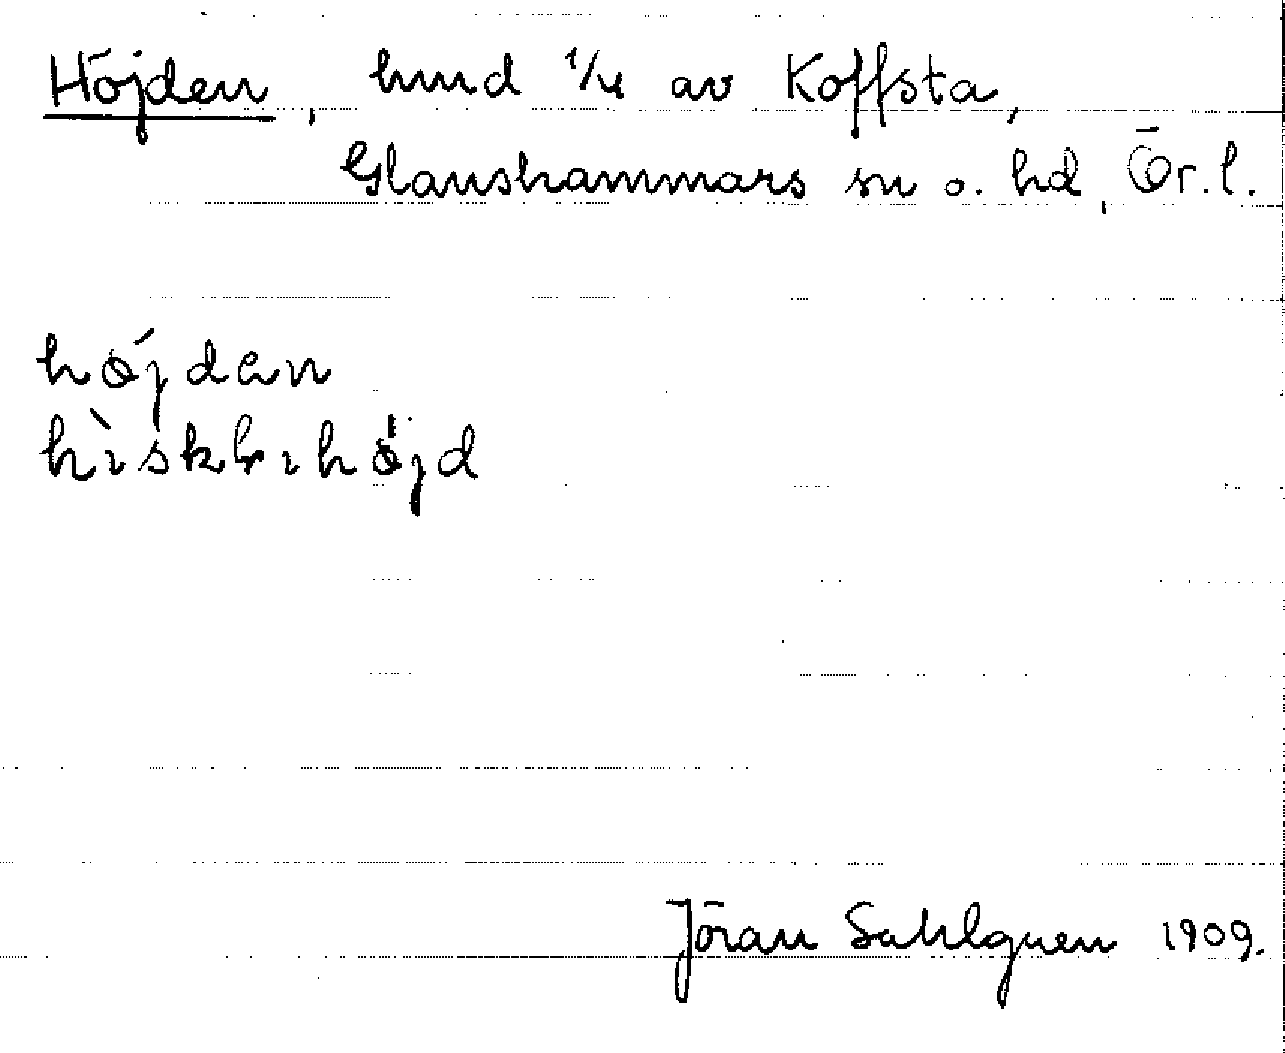 Höjden, hmd 1/4 av Koffsta,
Glanshammars sn o. hd, Ör. l.
höjdan
Jöran Sahlgren 1909.